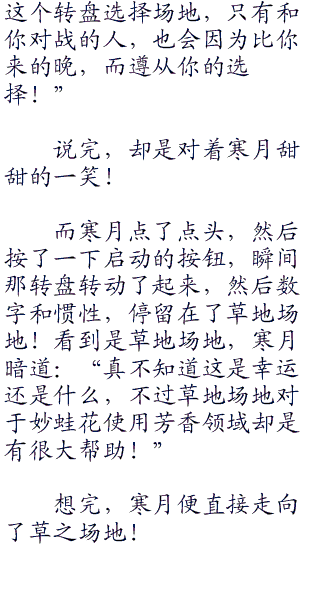 这个转盘选择场地，只有和
你对战的人，也会因为比你
来的晚，而遵从你的选
择！”
说完，却是对着寒月甜
甜的一笑！
而寒月点了点头，然后
按了一下启动的按钮，瞬间
那转盘转动了起来，然后数
字和惯性，停留在了草地场
地！看到是草地场地，寒月
暗道：“真不知道这是幸运
还是什么，不过草地场地对
于妙蛙花使用芳香领域却是
有很大帮助！”
想完，寒月便直接走向
了草之场地！